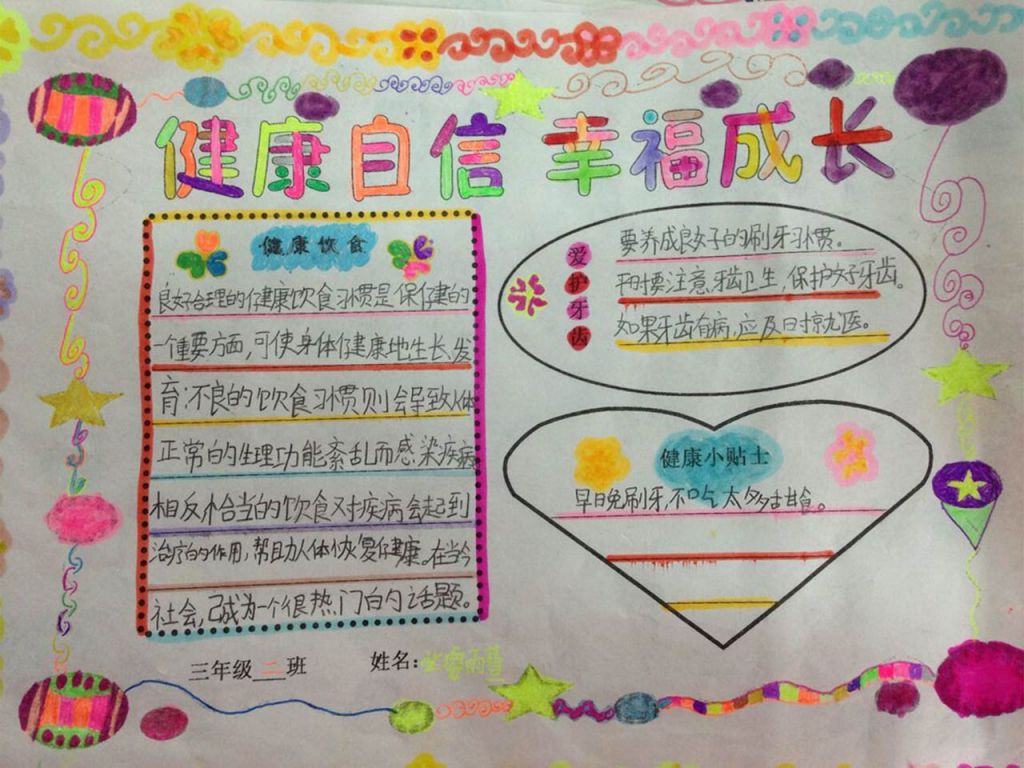 健康自信 幸福成长
健康饮食
良好合理的健康饮食习惯是保健的
一个重要方面,可使身体健康地生长、发
育;不良的饮食习惯则会导致人体
正常的生理功能紊乱而感染疾病
相反,恰当的饮食对疾病会起到
治疗的作用,帮助人体恢复健康。在当今
社会,已成为一个很热门的话题。
爱护牙齿
要养成良好的刷牙习惯。
平时要注意牙齿卫生,保护好牙齿。
如果牙齿有病,应及时就医。
健康小贴士
早日晚刷牙,不吃太多甜食。
三年级二班 姓名: